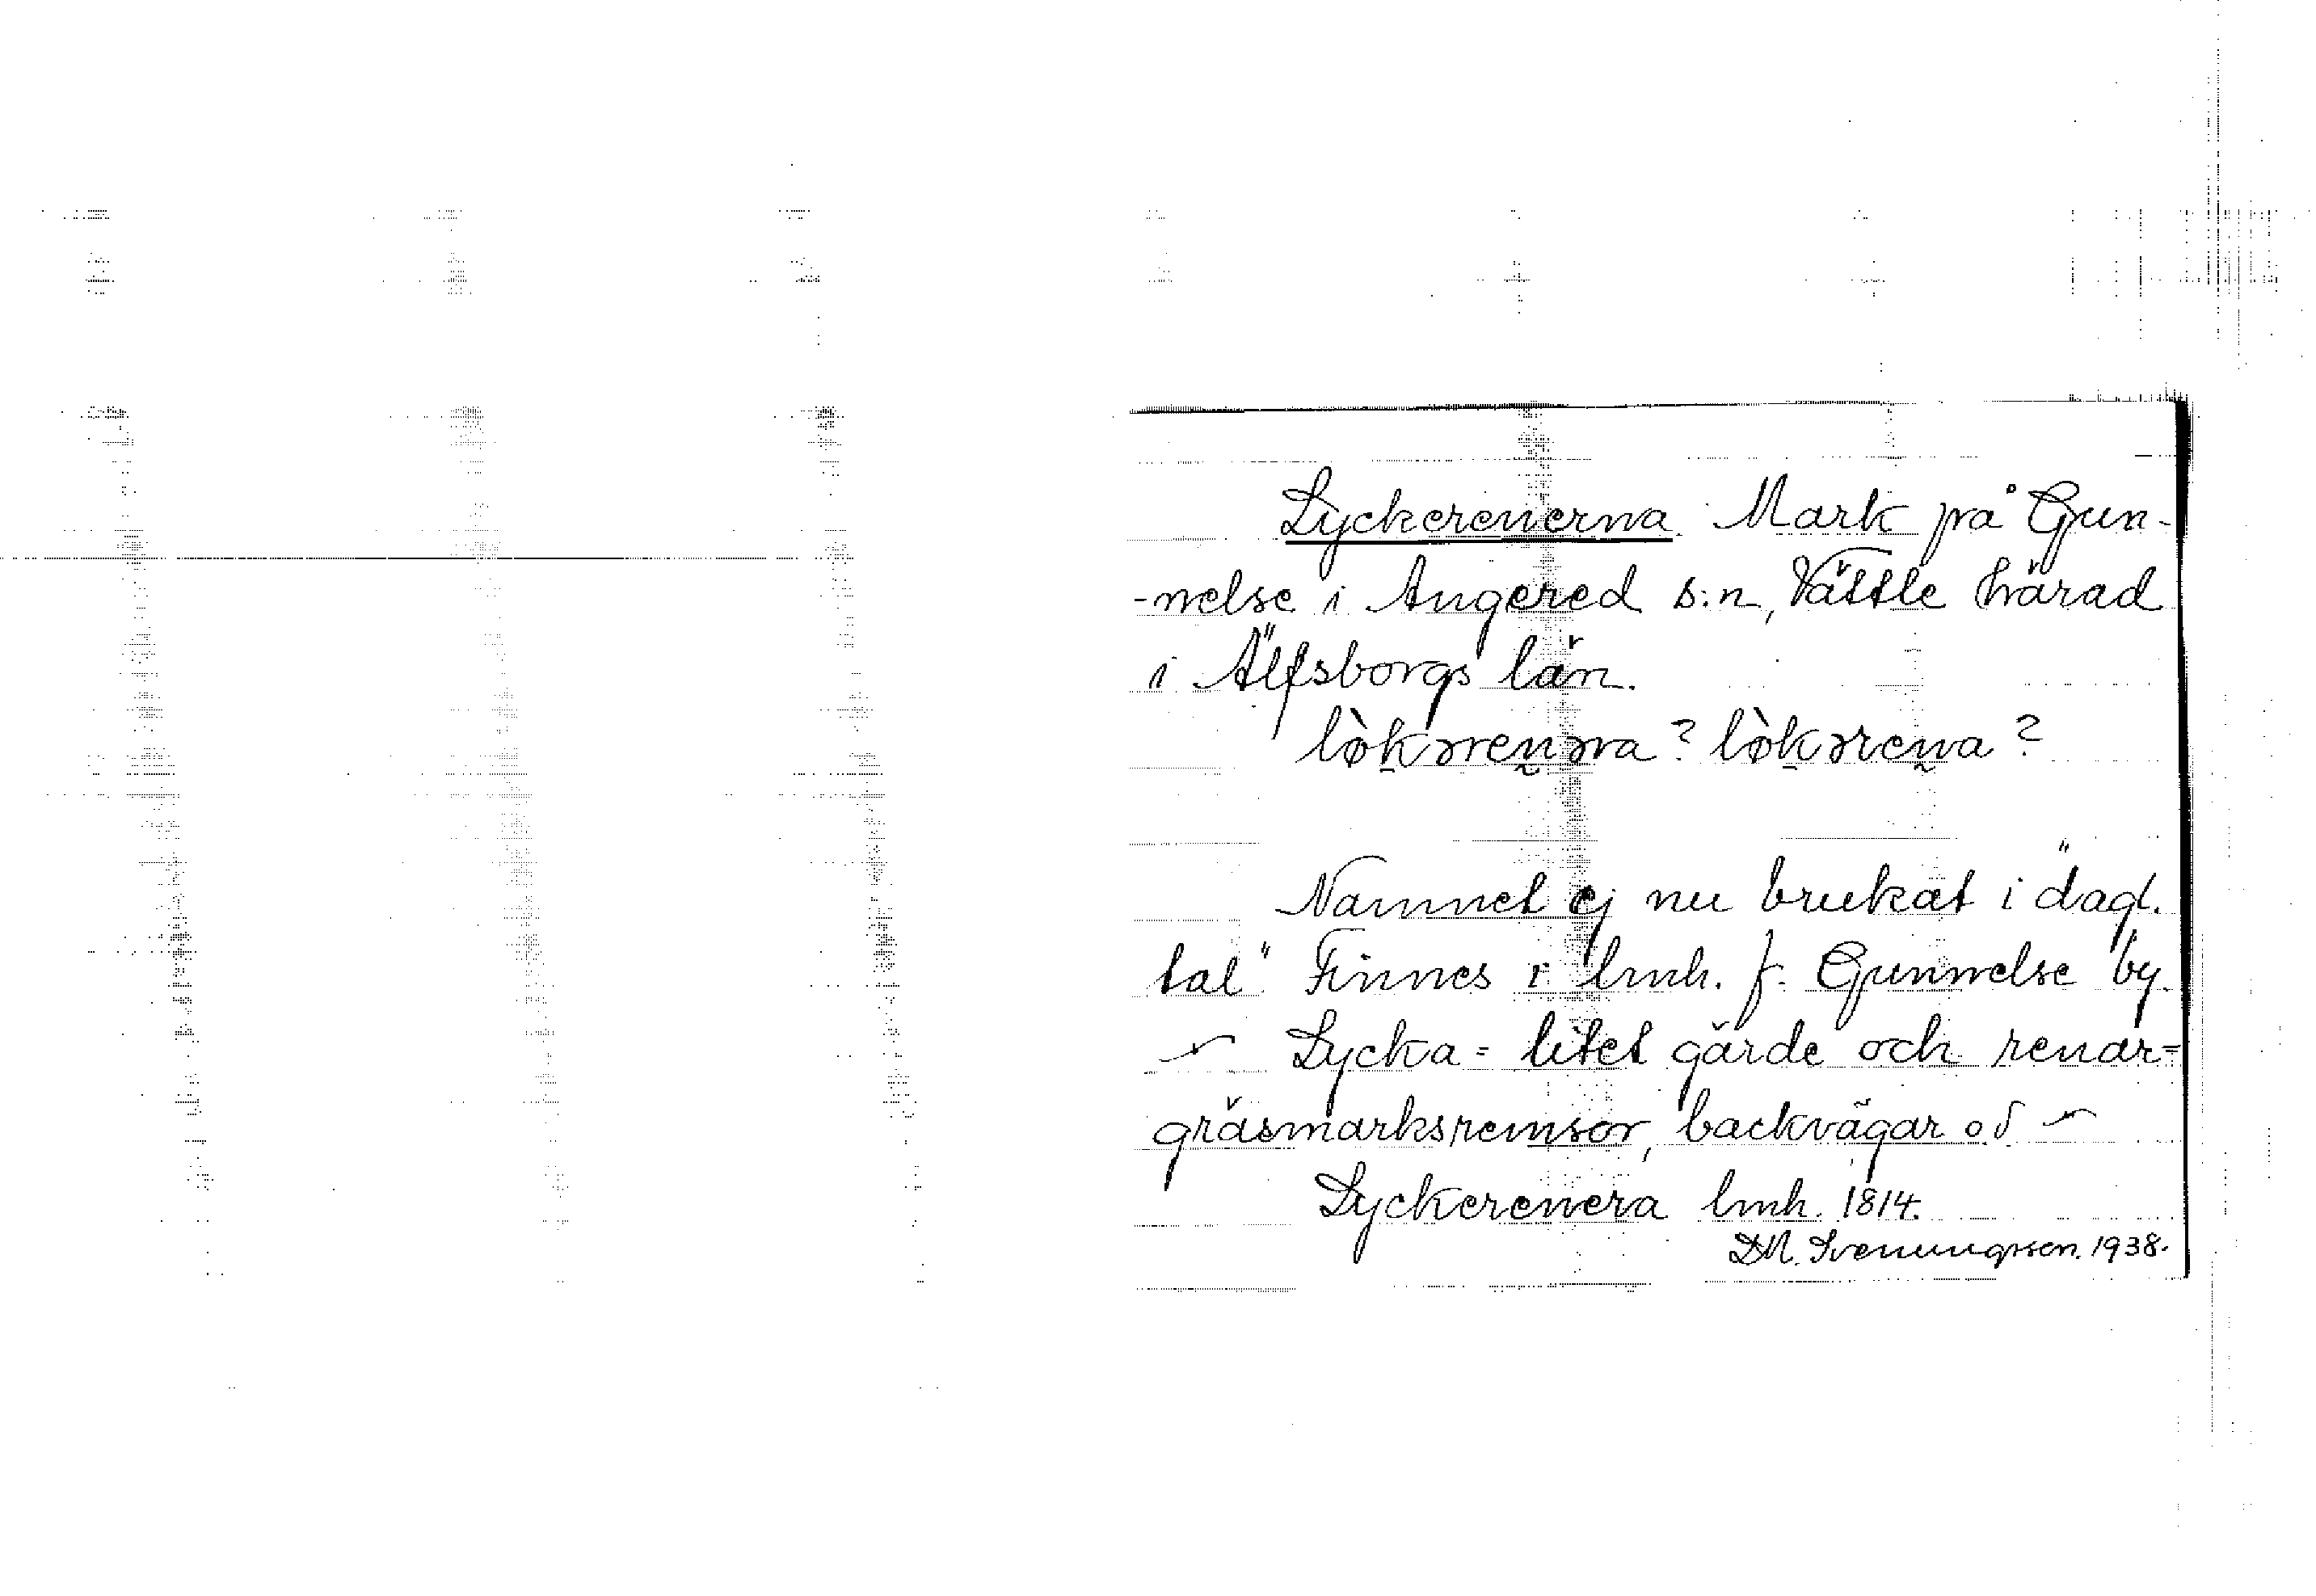 Lyckerenerna Mark på Gun-
-nelse i Angered s:n, Vättle härad
i Älfsborgs län.
lø̀kərenəra? lø̀kərena?
Namnet ej nu brukat i "dagl.
tal". Finnes i lmh. f. Gunnelse by.
~ Lycka = litet gärde och renar =
gräsmarksremsor, backvägar o d ~
Lyckerenera lmh. 1814.
D.M. Svenungsson. 1938.